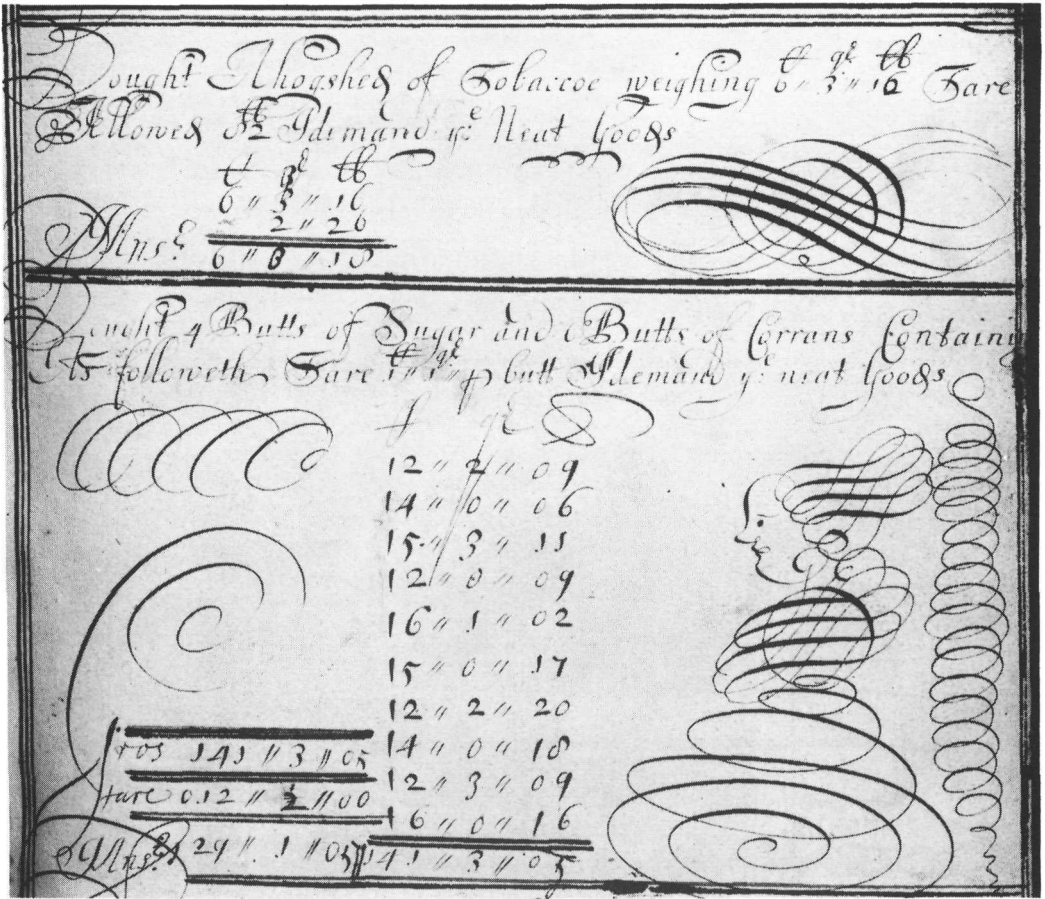 C qr lb
Bought A hogshed of Tobaccoe weighing 6 " 3 " 16 Tare
Allowed I demand ye Neat Goods
C qr lb
6 " 3 " 16
2 " 26
Ansr 6 " 0 " 18
Bought 4 Butts of Sugar and 6 Butts of Corrans Containing
As followeth Tare 1 " 1 " p butt I demand ye neat Goods
12 " 2 " 09
14 " 0 " 06
15 " 3 " 11
12 " 0 " 09
16 " 1 " 02
15 " 0 " 17
12 " 2 " 20
14 " 0 " 18
12 " 3 " 09
16 " 0 " 16
141 " 3 " 05
Gros 141 " 3 " 05
tare 012 " 2 " 00
Ansr 129 " 1 " 05